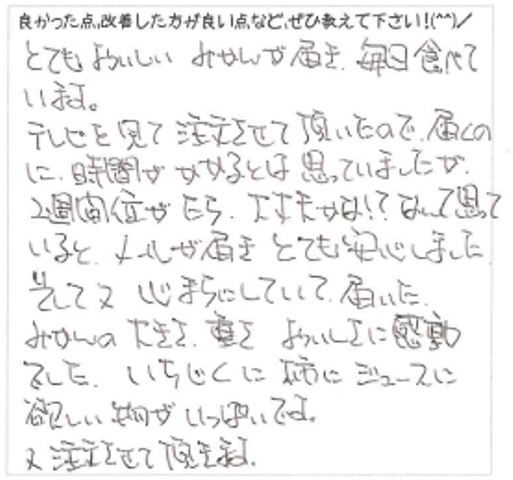 良かった点、改善した方が良い点など、ぜひ教えて下さい!(^^)/
とてもおいしい みかんが届き、毎日食べて
います。
テレビを見て 注文させて頂いたので、届くの
に、時間がかかるとは 思っていましたが、
2週間位がたち、大丈夫かな!?なんて思って
いると、メールが届き とても安心しました
そして又 心まちにしていて、届いた、
みかんの大きさ、重さ おいしさに感動
でした。いちじくに 柿に ジュースに
欲しい物が いっぱいです。
又 注文させて頂きます。